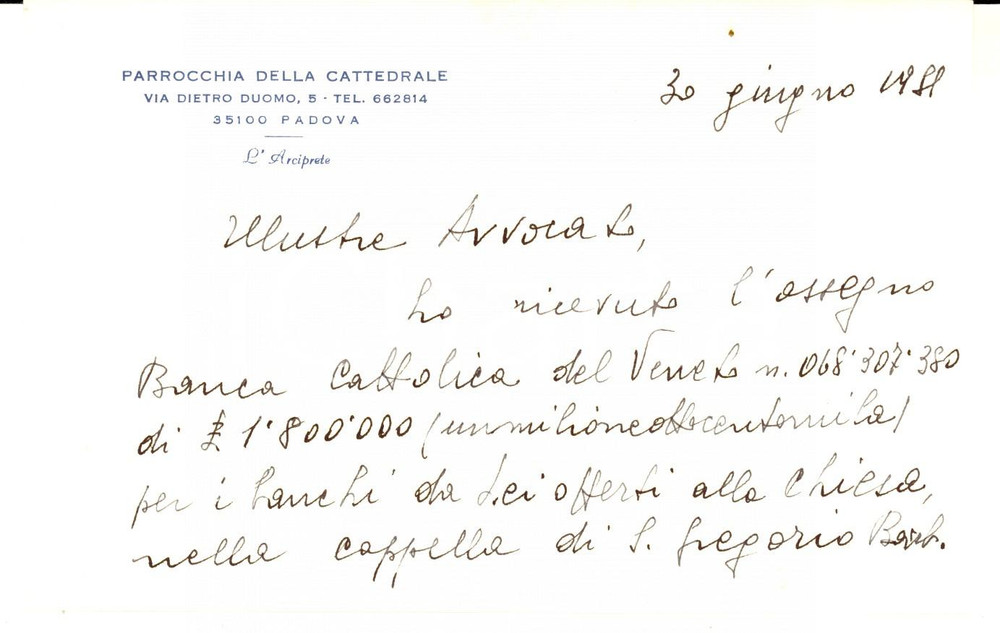 PARROCCHIA DELLA CATTEDRALE
VIA DIETRO DUOMO, 5 - TEL. 662814
35100 PADOVA
L' Arciprete
30 giugno 1981
Illustre Avvocato,
ho ricevuto l'assegno
Banca Cattolica del Veneto n. 068'307'380
di £ 1'800'000 (unmilioneottocentomila)
per i banchi da Lei offerti alla Chiesa,
nella cappella di S. Gregorio Barb.